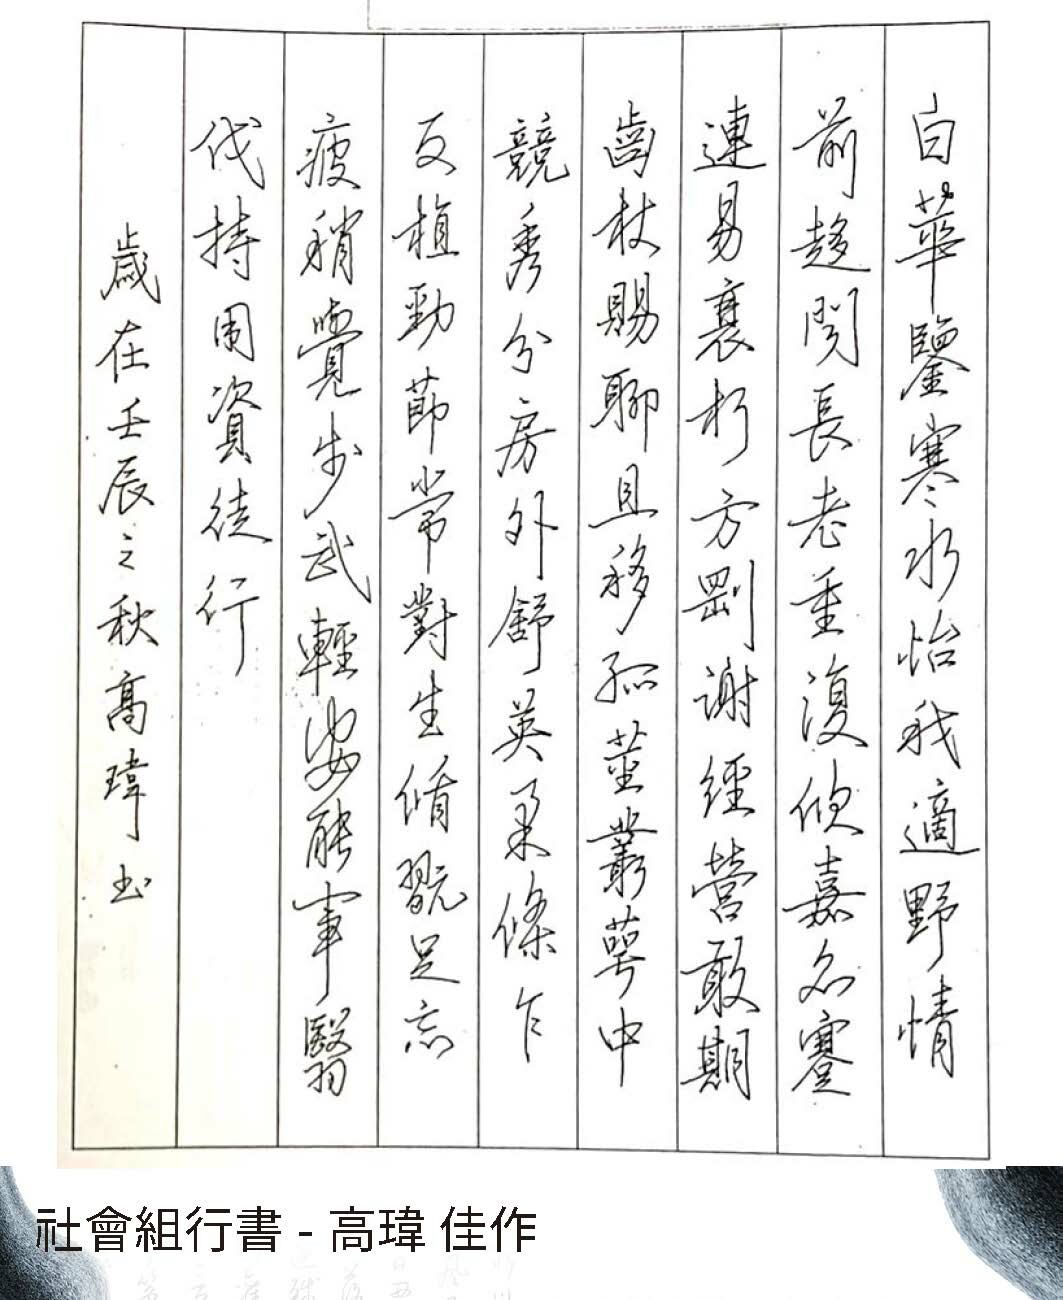 白華鑒寒水怡我適野情
前趨問長老重復欣嘉名蹇
連易衰朽方剛謝經營敢期
齒杖賜聊且移孤莖叢萼中
競秀分房外舒英柔條乍
反植勁節常對生循翫足忘
疲稍覺步武輕安能事翳
伐持用資徒行
歲在壬辰之秋高瑋書
社會組行書 - 高瑋 佳作